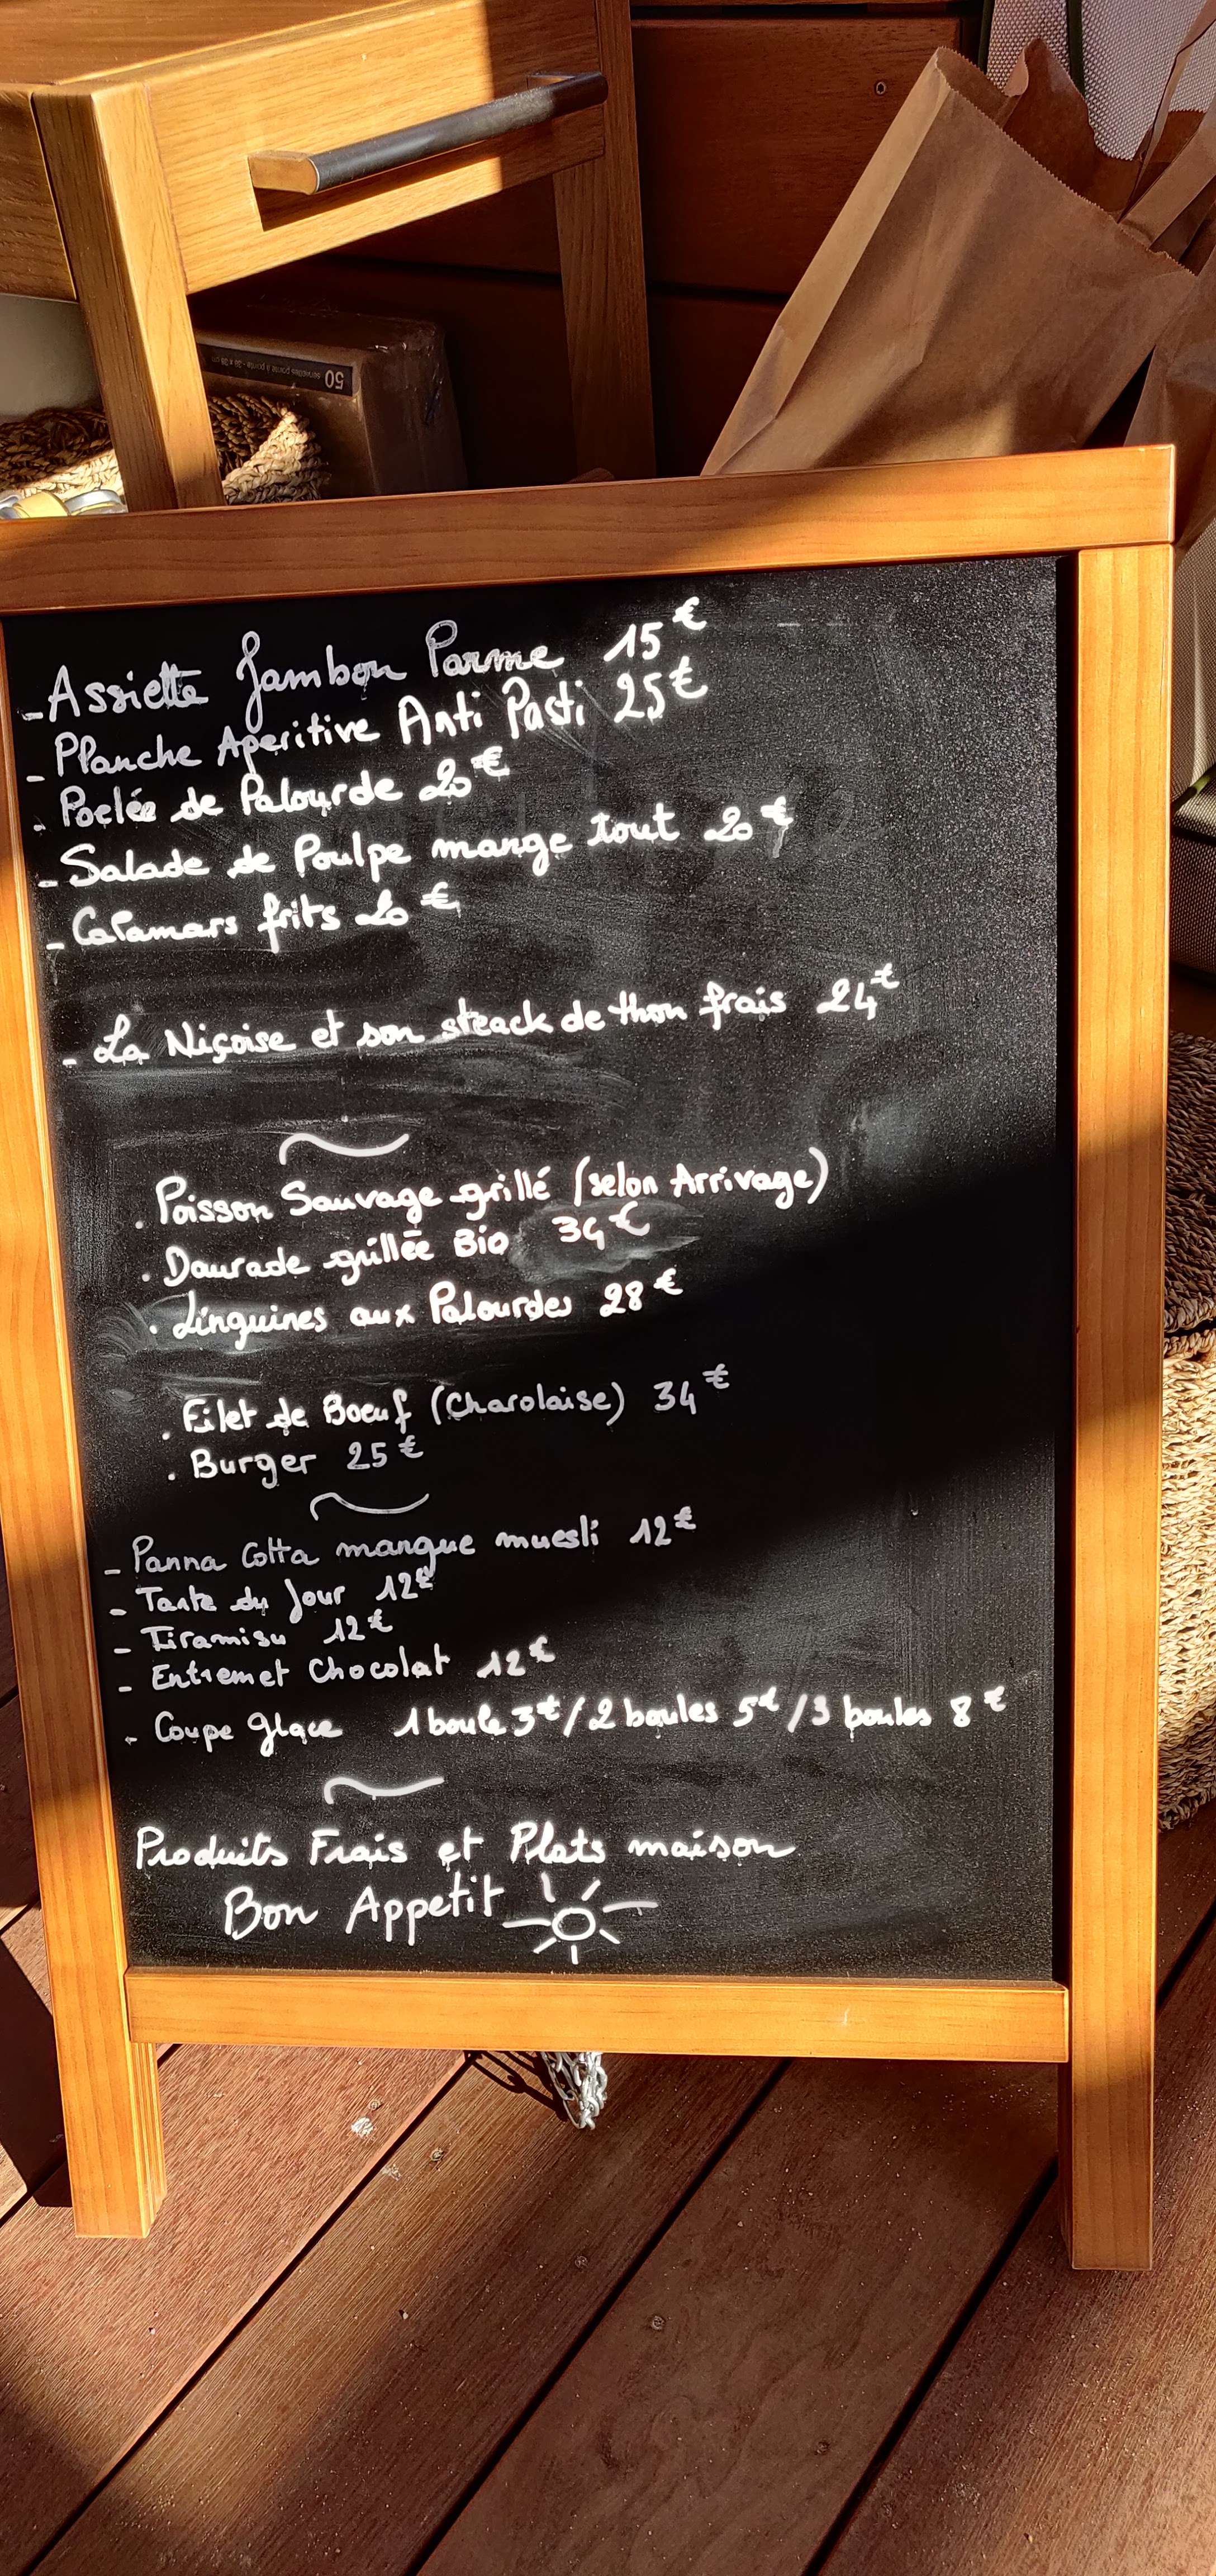 50 serviettes pointe à pointe - 38 x 38 cm
- Assiette Jambon Parme 15€
- Planche Aperitive Anti Pasti 25€
- Poelée de Palourde 20€
- Salade de Poulpe mange tout 20€
- Calamars frits 20€
- La Niçoise et son steack de thon frais 24€
. Poisson Sauvage grillé (selon Arrivage)
. Daurade grillée Bio 34€
. Linguines aux Palourdes 28€
. Filet de Boeuf (Charolaise) 34€
. Burger 25€
- Panna Cotta mangue muesli 12€
- Tarte du Jour 12€
- Tiramisu 12€
- Entremet Chocolat 12€
- Coupe glace 1 boule 3€ / 2 boules 5€ / 3 boules 8€
Produits Frais et Plats maison
Bon Appetit